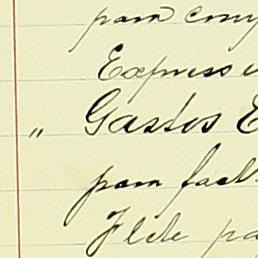 pam
Express
" Gastos E
pam fact
Flete pa